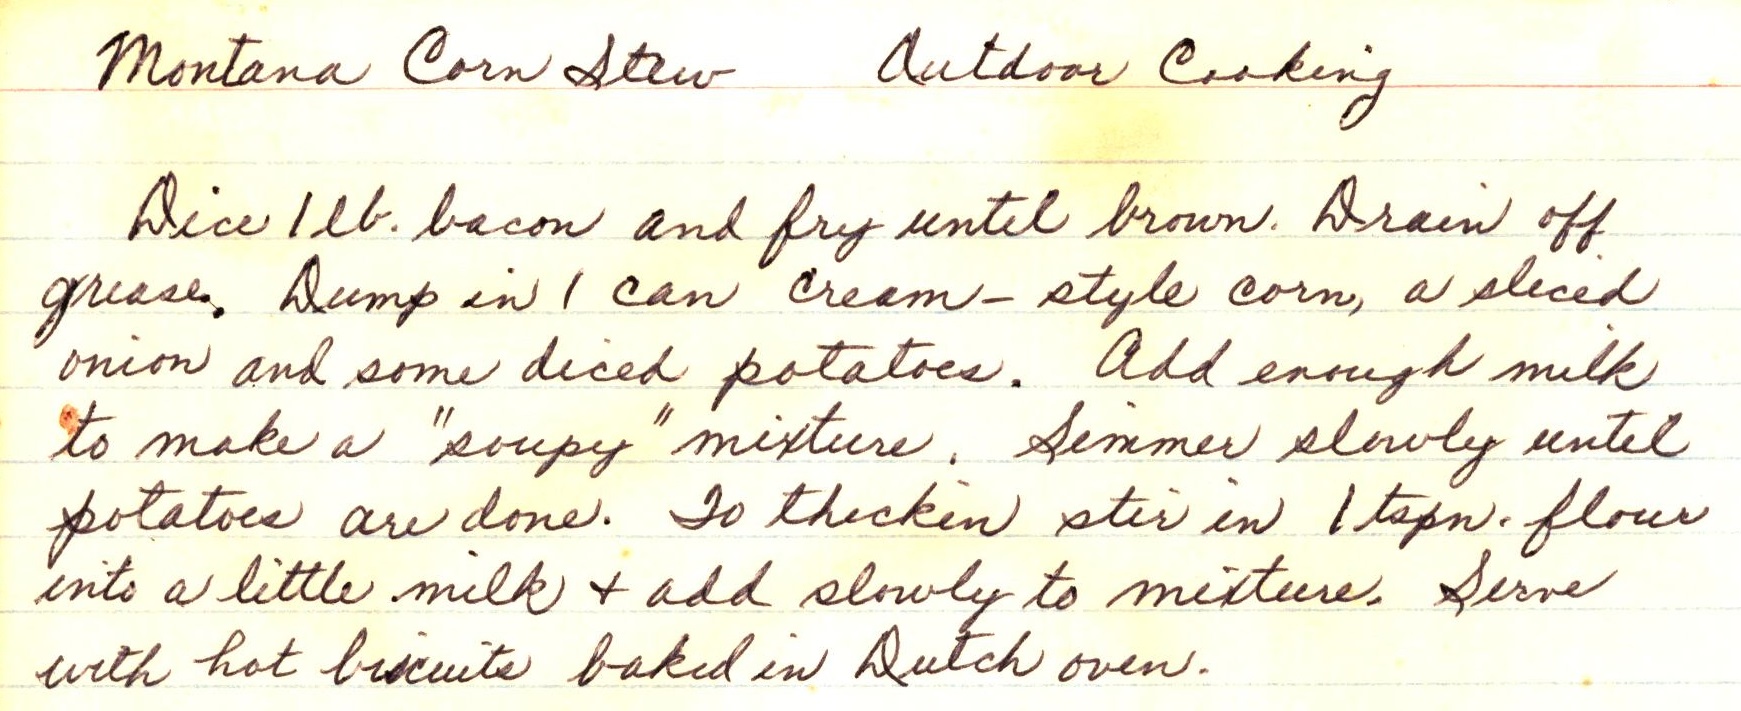 Montana Corn Stew Outdoor Cooking
Dice 1 lb. bacon and fry until brown. Drain off
grease. Dump in 1 can cream-style corn, a sliced
onion and some diced potatoes. Add enough milk
to make a "soupy" mixture. Simmer slowly until
potatoes are done. To thicken stir in 1 tspn. flour
into a little milk + add slowly to mixture. Serve
with hot biscuits baked in Dutch oven.